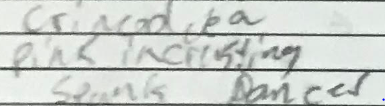 Crinoidea
Pink incrusting
Dancer